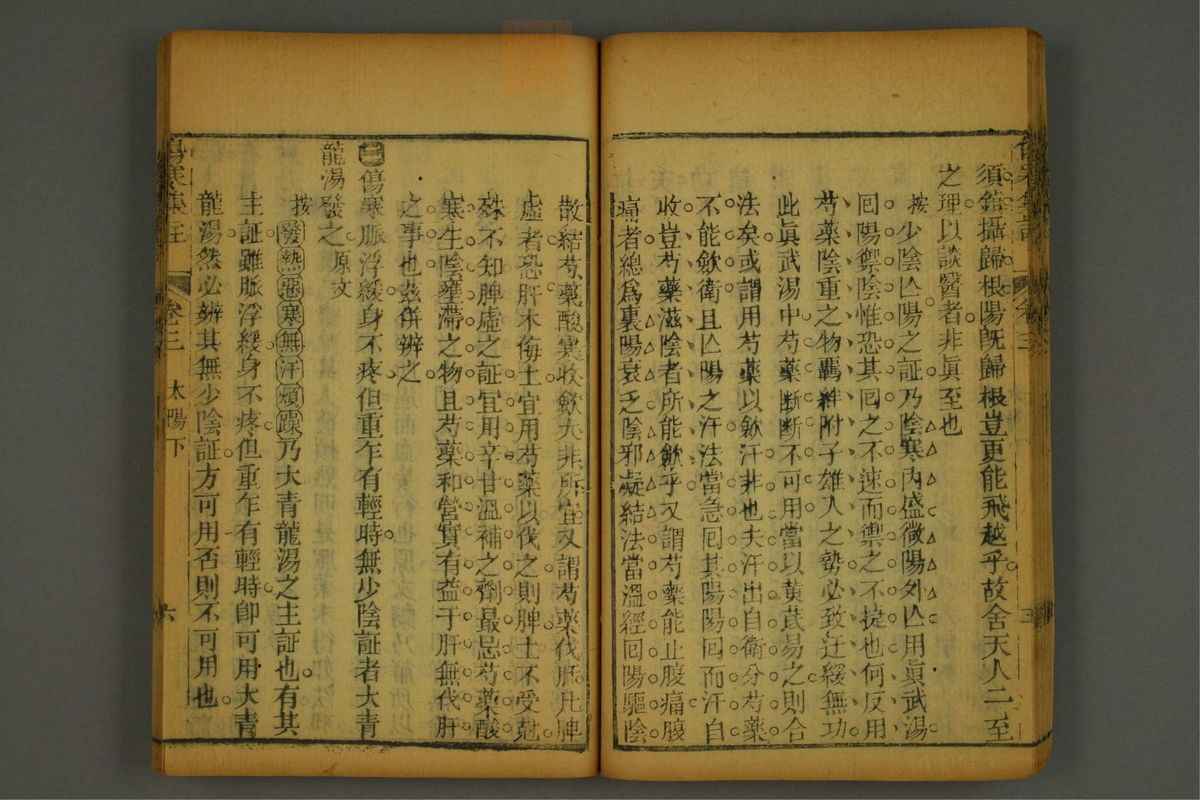 須舘攝歸根陽旣歸根豈更能飛越乎故舍天人二至
之理以談醫者非眞至也
按少陰亾陽之証乃陰寒內盛微陽外亾用眞武湯
囘陽禦陰惟恐其囘之不速而禦之不㨗也何反用
芍藥陰重之物羈絆附子雄入之勢必致迂緩無功
此眞武湯中芍藥斷斷不可用當以黃芪易之則合
法矣或謂用芍藥以歛汗非也夫汗出自衛分芍藥
不能歛衛且亾陽之汗法當急囘其陽陽囘而汗自
收豈芍藥滋陰者所能歛乎又謂芍藥能止腹痛腹
痛者總爲裏陽衰乏陰邪凝結法當溫經囘陽驅陰
散結芍藥酸寒收歛大非所宜又謂芍藥伐肝凡脾
虛者恐肝木侮土宜用芍藥以伐之則脾土不受尅
殊不知脾虛之証宜用辛甘溫補之劑最忌芍藥酸
寒生陰壅滯之物且芍藥和營實有益于肝無伐肝
之事也茲併辨之
二傷寒脈浮緩身不疼但重乍有輕時無少陰証者大青
龍湯發之 原文
按發熱惡寒無汗煩躁乃大青龍湯之主証也有其
主証雖脈浮緩身不疼但重乍有輕時卽可用大青
龍湯然必辨其無少陰証方可用否則不可用也
傷寒集註 卷三 太陽下 六